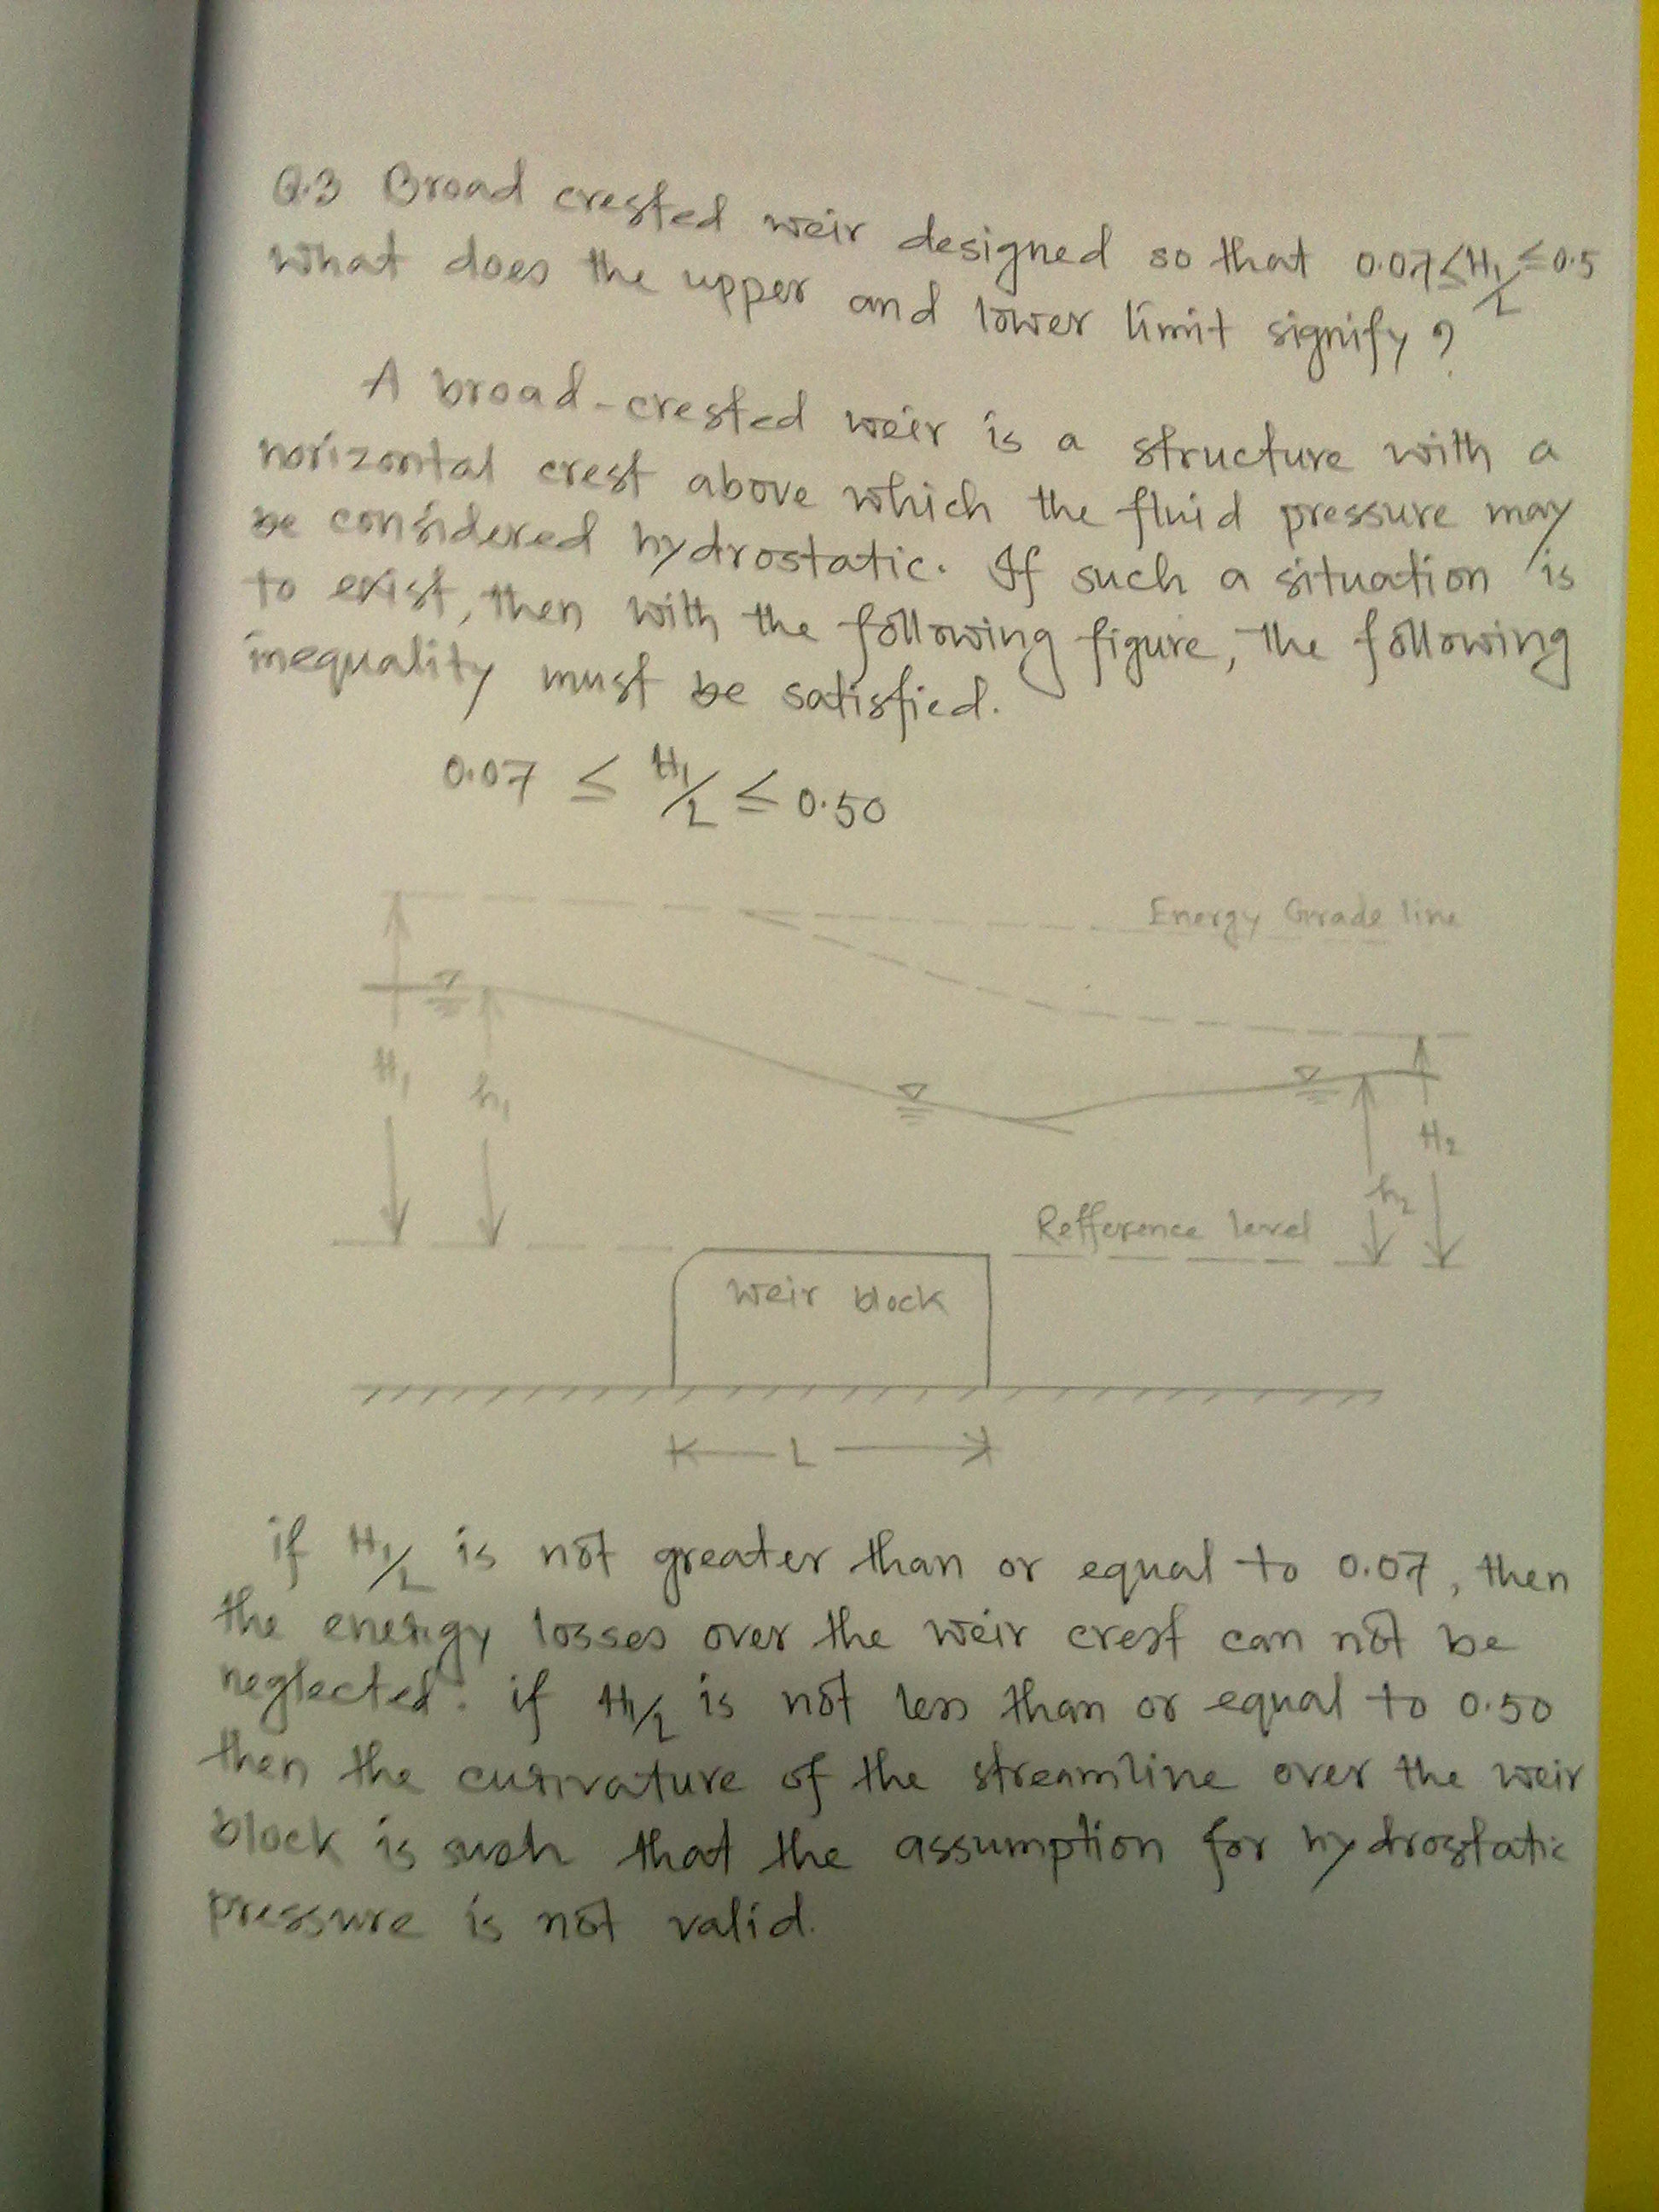 Q.3 Broad crested weir designed so that 0.07≤H₁/L≤0.5
What does the upper and lower limit signify?
A broad-crested weir is a structure with a
horizontal crest above which the fluid pressure may
be considered hydrostatic. If such a situation is
to exist, then with the following figure, the following
inequality must be satisfied.
0.07 ≤ H₁/L ≤ 0.50
Energy Grade line
H₁
h₁
H₂
h₂
Refference level
Weir block
L
if H₁/L is not greater than or equal to 0.07, then
the energy losses over the weir crest can not be
neglected. if H₁/L is not less than or equal to 0.50
then the curvature of the streamline over the weir
block is such that the assumption for hydrostatic
pressure is not valid.